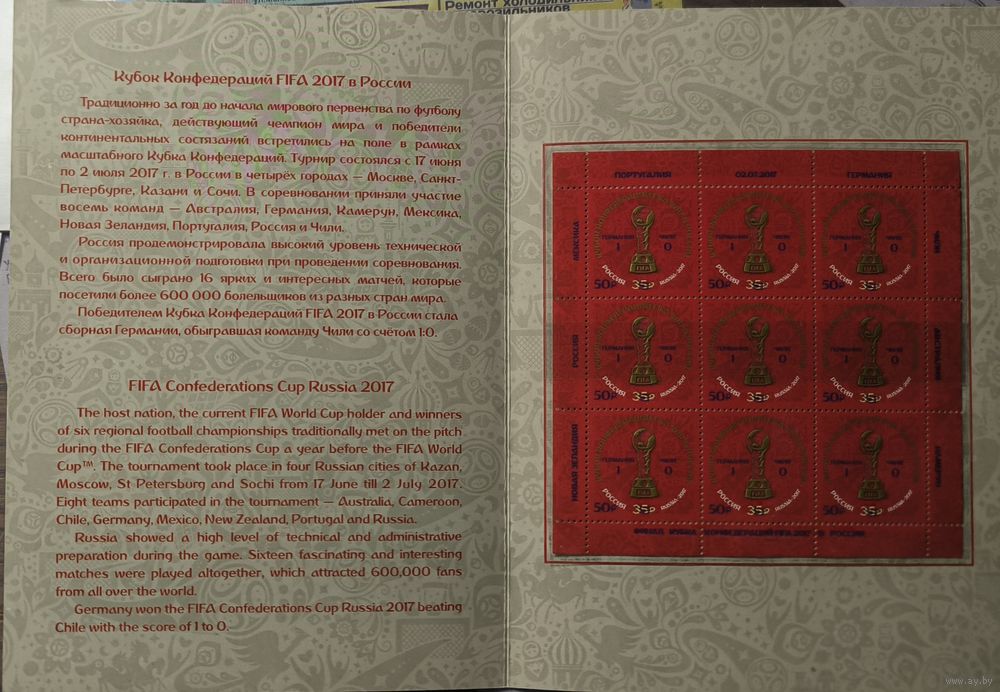 Ремонт холодильник
розильников
Кубок Конфедераций FIFA 2017 в России
Традиционно за год до начала мирового первенства по футболу
страна-хозяйка, действующий чемпион мира и победители
континентальных состязаний встретились на поле в рамках
масштабного Кубка Конфедераций. Турнир состоялся с 17 июня
по 2 июля 2017 г. в России в четырёх городах — Москве, Санкт-
Петербурге, Казани и Сочи. В соревновании приняли участие
восемь команд — Австралия, Германия, Камерун, Мексика,
Новая Зеландия, Португалия, Россия и Чили.
Россия продемонстрировала высокий уровень технической
и организационной подготовки при проведении соревнования.
Всего было сыграно 16 ярких и интересных матчей, которые
посетили более 600 000 болельщиков из разных стран мира.
Победителем Кубка Конфедераций FIFA 2017 в России стала
сборная Германии, обыгравшая команду Чили со счётом 1:0.
FIFA Confederations Cup Russia 2017
The host nation, the current FIFA World Cup holder and winners
of six regional football championships traditionally met on the pitch
during the FIFA Confederations Cup a year before the FIFA World
Cup™. The tournament took place in four Russian cities of Kazan,
Moscow, St Petersburg and Sochi from 17 June till 2 July 2017.
Eight teams participated in the tournament — Australia, Cameroon,
Chile, Germany, Mexico, New Zealand, Portugal and Russia.
Russia showed a high level of technical and administrative
preparation during the game. Sixteen fascinating and interesting
matches were played altogether, which attracted 600,000 fans
from all over the world.
Germany won the FIFA Confederations Cup Russia 2017 beating
Chile with the score of 1 to 0.
ПОРТУГАЛИЯ 02.07.2017 ГЕРМАНИЯ
МЕКСИКА
ГЕРМАНИЯ ЧИЛИ ГЕРМАНИЯ ЧИЛИ ГЕРМАНИЯ ЧИЛИ
1 0 1 0 1 0
FIFA FIFA FIFA
РОССИЯ RUSSIA·2017 РОССИЯ RUSSIA·2017 РОССИЯ RUSSIA·2017
50₽ 35₽ 50₽ 35₽ 50₽ 35₽
ЧИЛИ
РОССИЯ
ГЕРМАНИЯ ЧИЛИ ГЕРМАНИЯ ЧИЛИ ГЕРМАНИЯ ЧИЛИ
1 0 1 0 1 0
FIFA FIFA FIFA
РОССИЯ RUSSIA·2017 РОССИЯ RUSSIA·2017 РОССИЯ RUSSIA·2017
50₽ 35₽ 50₽ 35₽ 50₽ 35₽
АВСТРАЛИЯ
НОВАЯ ЗЕЛАНДИЯ
ГЕРМАНИЯ ЧИЛИ ГЕРМАНИЯ ЧИЛИ ГЕРМАНИЯ ЧИЛИ
1 0 1 0 1 0
FIFA FIFA FIFA
РОССИЯ RUSSIA·2017 РОССИЯ RUSSIA·2017 РОССИЯ RUSSIA·2017
50₽ 35₽ 50₽ 35₽ 50₽ 35₽
КАМЕРУН
ФИНАЛ КУБКА КОНФЕДЕРАЦИЙ FIFA 2017 В РОССИИ
www.ay.by